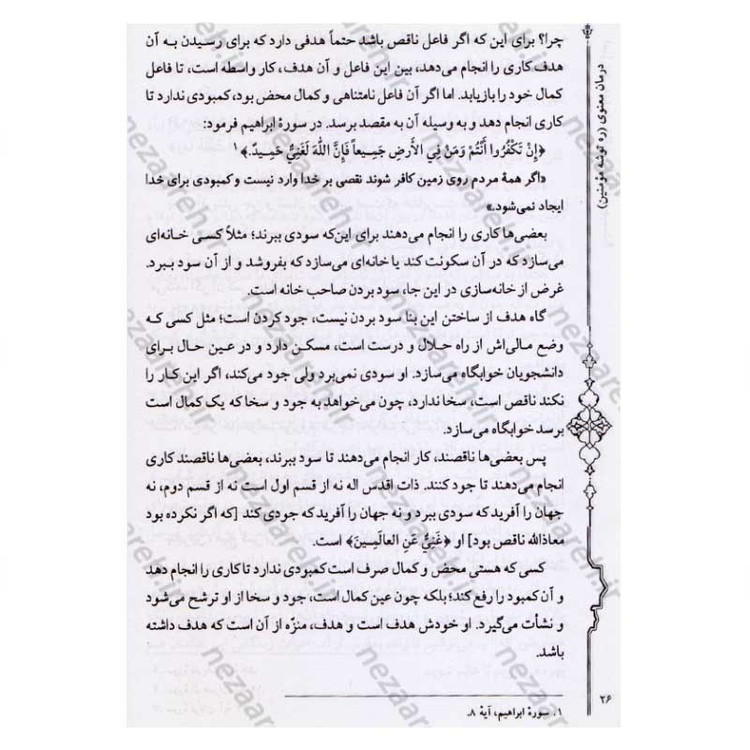 چرا؟ برای این که اگر فاعل ناقص باشد حتماً هدفی دارد که برای رسیدن به آن
هدف کاری را انجام می‌دهد، بین این فاعل و آن هدف، کار واسطه است، تا فاعل
کمال خود را بازیابد. اما اگر آن فاعل نامتناهی و کمال محض بود، کمبودی ندارد تا
کاری انجام دهد و به وسیله آن به مقصد برسد. در سورهٔ ابراهیم فرمود:
﴿إِنْ تَكْفُرُوا أَنْتُمْ وَمَنْ فِي الْأَرضِ جَمِيعاً فَإِنَّ اللّٰهَ لَغَنِيٌّ حَمِيدٌ.﴾ ۱
«اگر همهٔ مردم روی زمین کافر شوند نقصی بر خدا وارد نیست و کمبودی برای خدا
ایجاد نمی‌شود.»
بعضی‌ها کاری را انجام می‌دهند برای این‌که سودی ببرند؛ مثلاً کسی خانه‌ای
می‌سازد که در آن سکونت کند یا خانه‌ای می‌سازد که بفروشد و از آن سود ببرد.
غرض از خانه‌سازی در این جا، سود بردن صاحب خانه است.
گاه هدف از ساختن این بنا سود بردن نیست، جود کردن است؛ مثل کسی که
وضع مالی‌اش از راه حلال و درست است، مسکن دارد و در عین حال برای
دانشجویان خوابگاه می‌سازد. او سودی نمی‌برد ولی جود می‌کند، اگر این کار را
نکند ناقص است، سخا ندارد، چون می‌خواهد به جود و سخا که یک کمال است
برسد خوابگاه می‌سازد.
پس بعضی‌ها ناقصند، کار انجام می‌دهند تا سود ببرند، بعضی‌ها ناقصند کاری
انجام می‌دهند تا جود کنند. ذات اقدس اله نه از قسم اول است نه از قسم دوم، نه
جهان را آفرید که سودی ببرد و نه جهان را آفرید که جودی کند [که اگر نکرده بود
معاذالله ناقص بود] او ﴿غَنِيٌّ عَنِ العالَمِينَ﴾ است.
کسی که هستی محض و کمال صرف است کمبودی ندارد تا کاری را انجام دهد
و آن کمبود را رفع کند؛ بلکه چون عین کمال است، جود و سخا از او ترشح می‌شود
و نشأت می‌گیرد. او خودش هدف است و هدف، منزّه از آن است که هدف داشته
باشد.
۱. سورهٔ ابراهیم، آیهٔ ۸.
درمان معنوی (ره توشه مؤمنین)
۲۶
nezaareh.ir